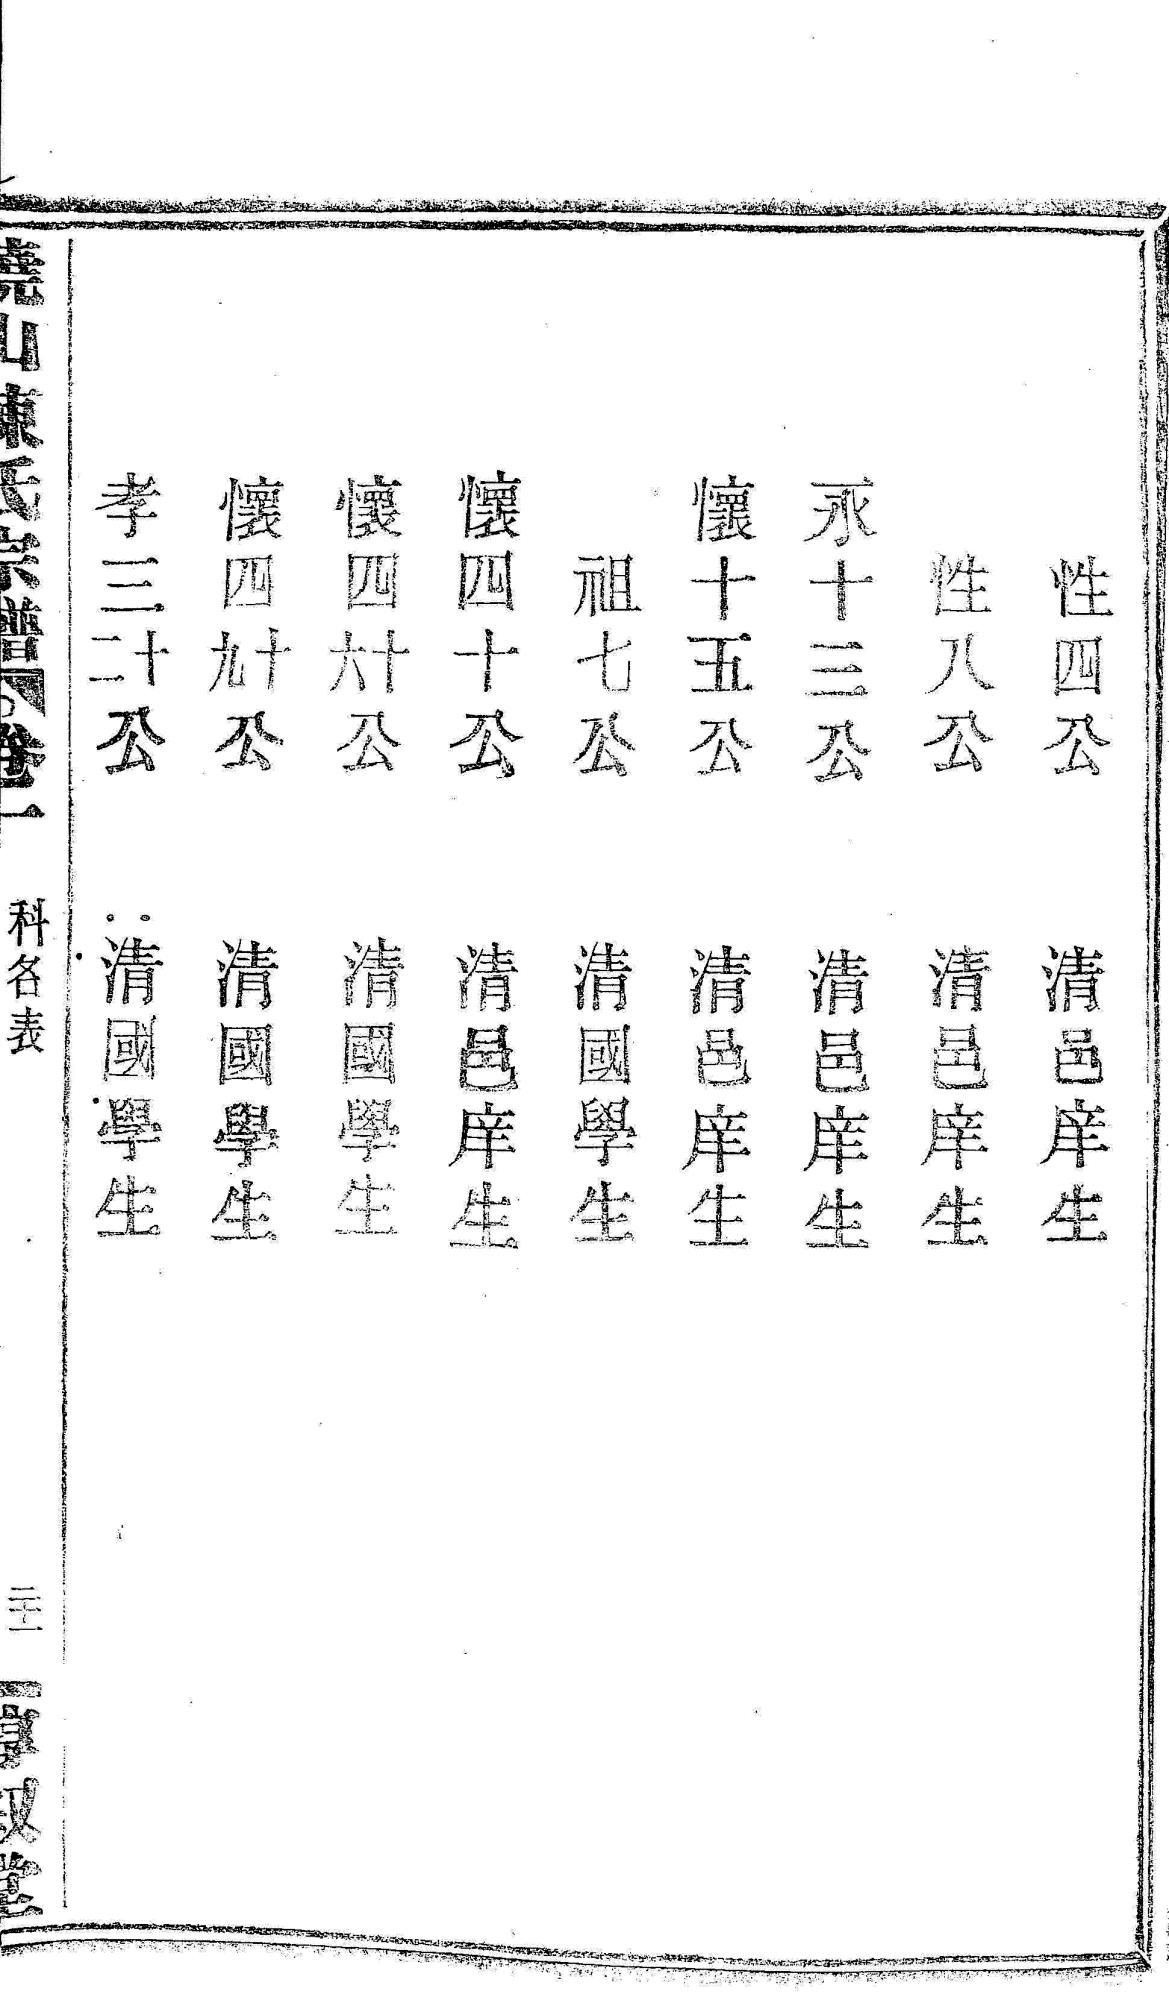 性四公　清邑庠生
性八公　清邑庠生
永十三公　清邑庠生
懷十五公　清邑庠生
祖七公　清國學生
懷四十公　清邑庠生
懷四十六公　清國學生
懷四十九公　清國學生
孝三十二公　清國學生
山陳氏宗譜　卷一　科名表　二十一　敘堂